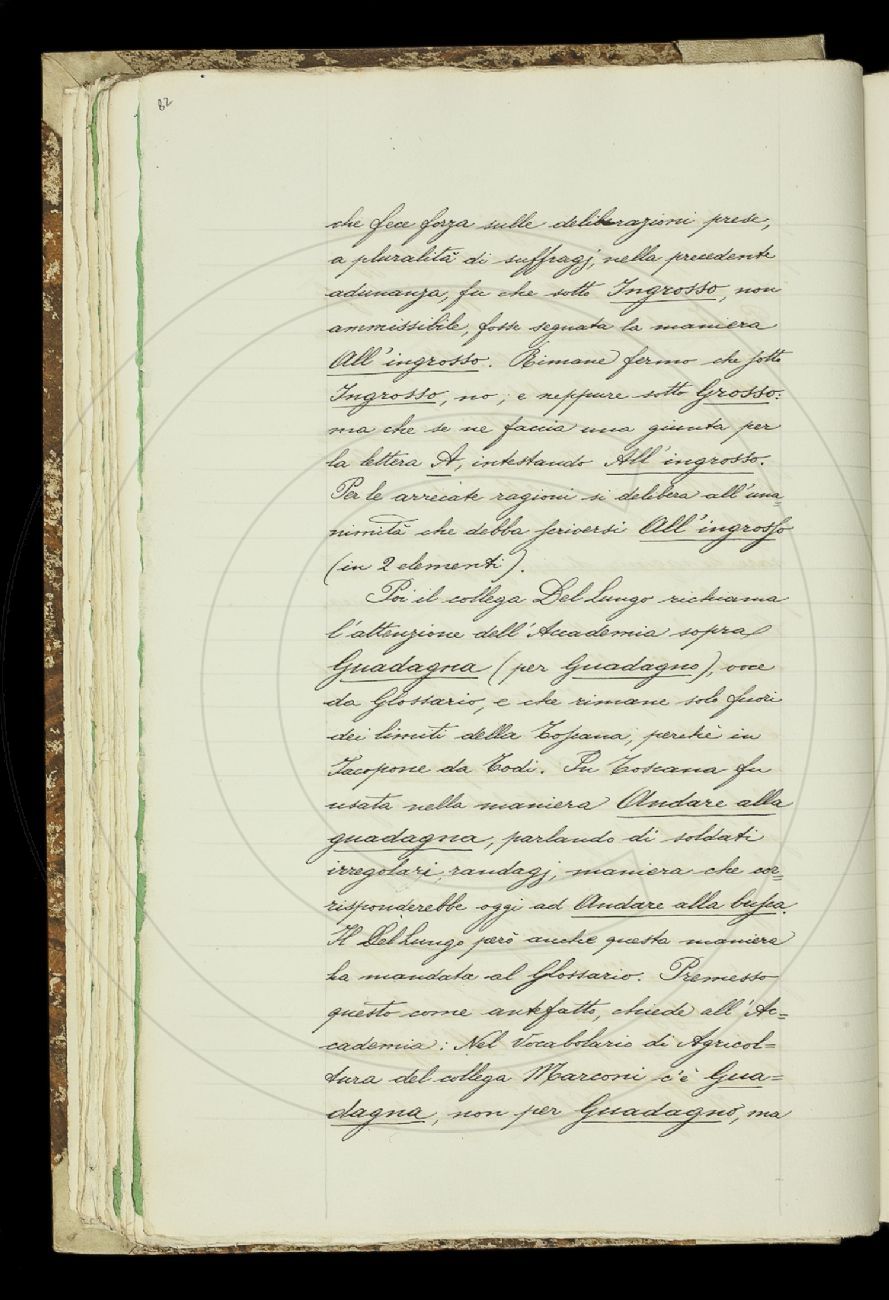 82
che fece forza sulle deliberazioni prese,
a pluralità di suffragj, nella precedente
adunanza, fu che sotto Ingrosso, non
ammissibile, fosse segnata la maniera
All'ingrosso. Rimane fermo che sotto
Ingrosso, no; e neppure sotto Grosso:
ma che se ne faccia una giunta per
la lettera A, intestando All'ingrosso.
Per le arrecate ragioni si delibera all'una=
nimità che debba scriversi All'ingrosso
(in 2 elementi).
Poi il collega Del Lungo richiama
l'attenzione dell'Accademia sopra
Guadagna (per Guadagno), voce
da Glossario, e che rimane solo fuori
dei limiti della Toscana, perchè in
Jacopone da Todi. In Toscana fu
usata nella maniera Andare alla
guadagna, parlando di soldati
irregolari, randagj, maniera che cor=
risponderebbe oggi ad Andare alla busca.
Il Del Lungo però anche questa maniera
ha mandata al Glossario. Premesso
questo come antefatto, chiede all'Ac=
cademia: Nel Vocabolario di Agricol=
tura del collega Marconi c'è Gua=
dagna, non per Guadagno, ma